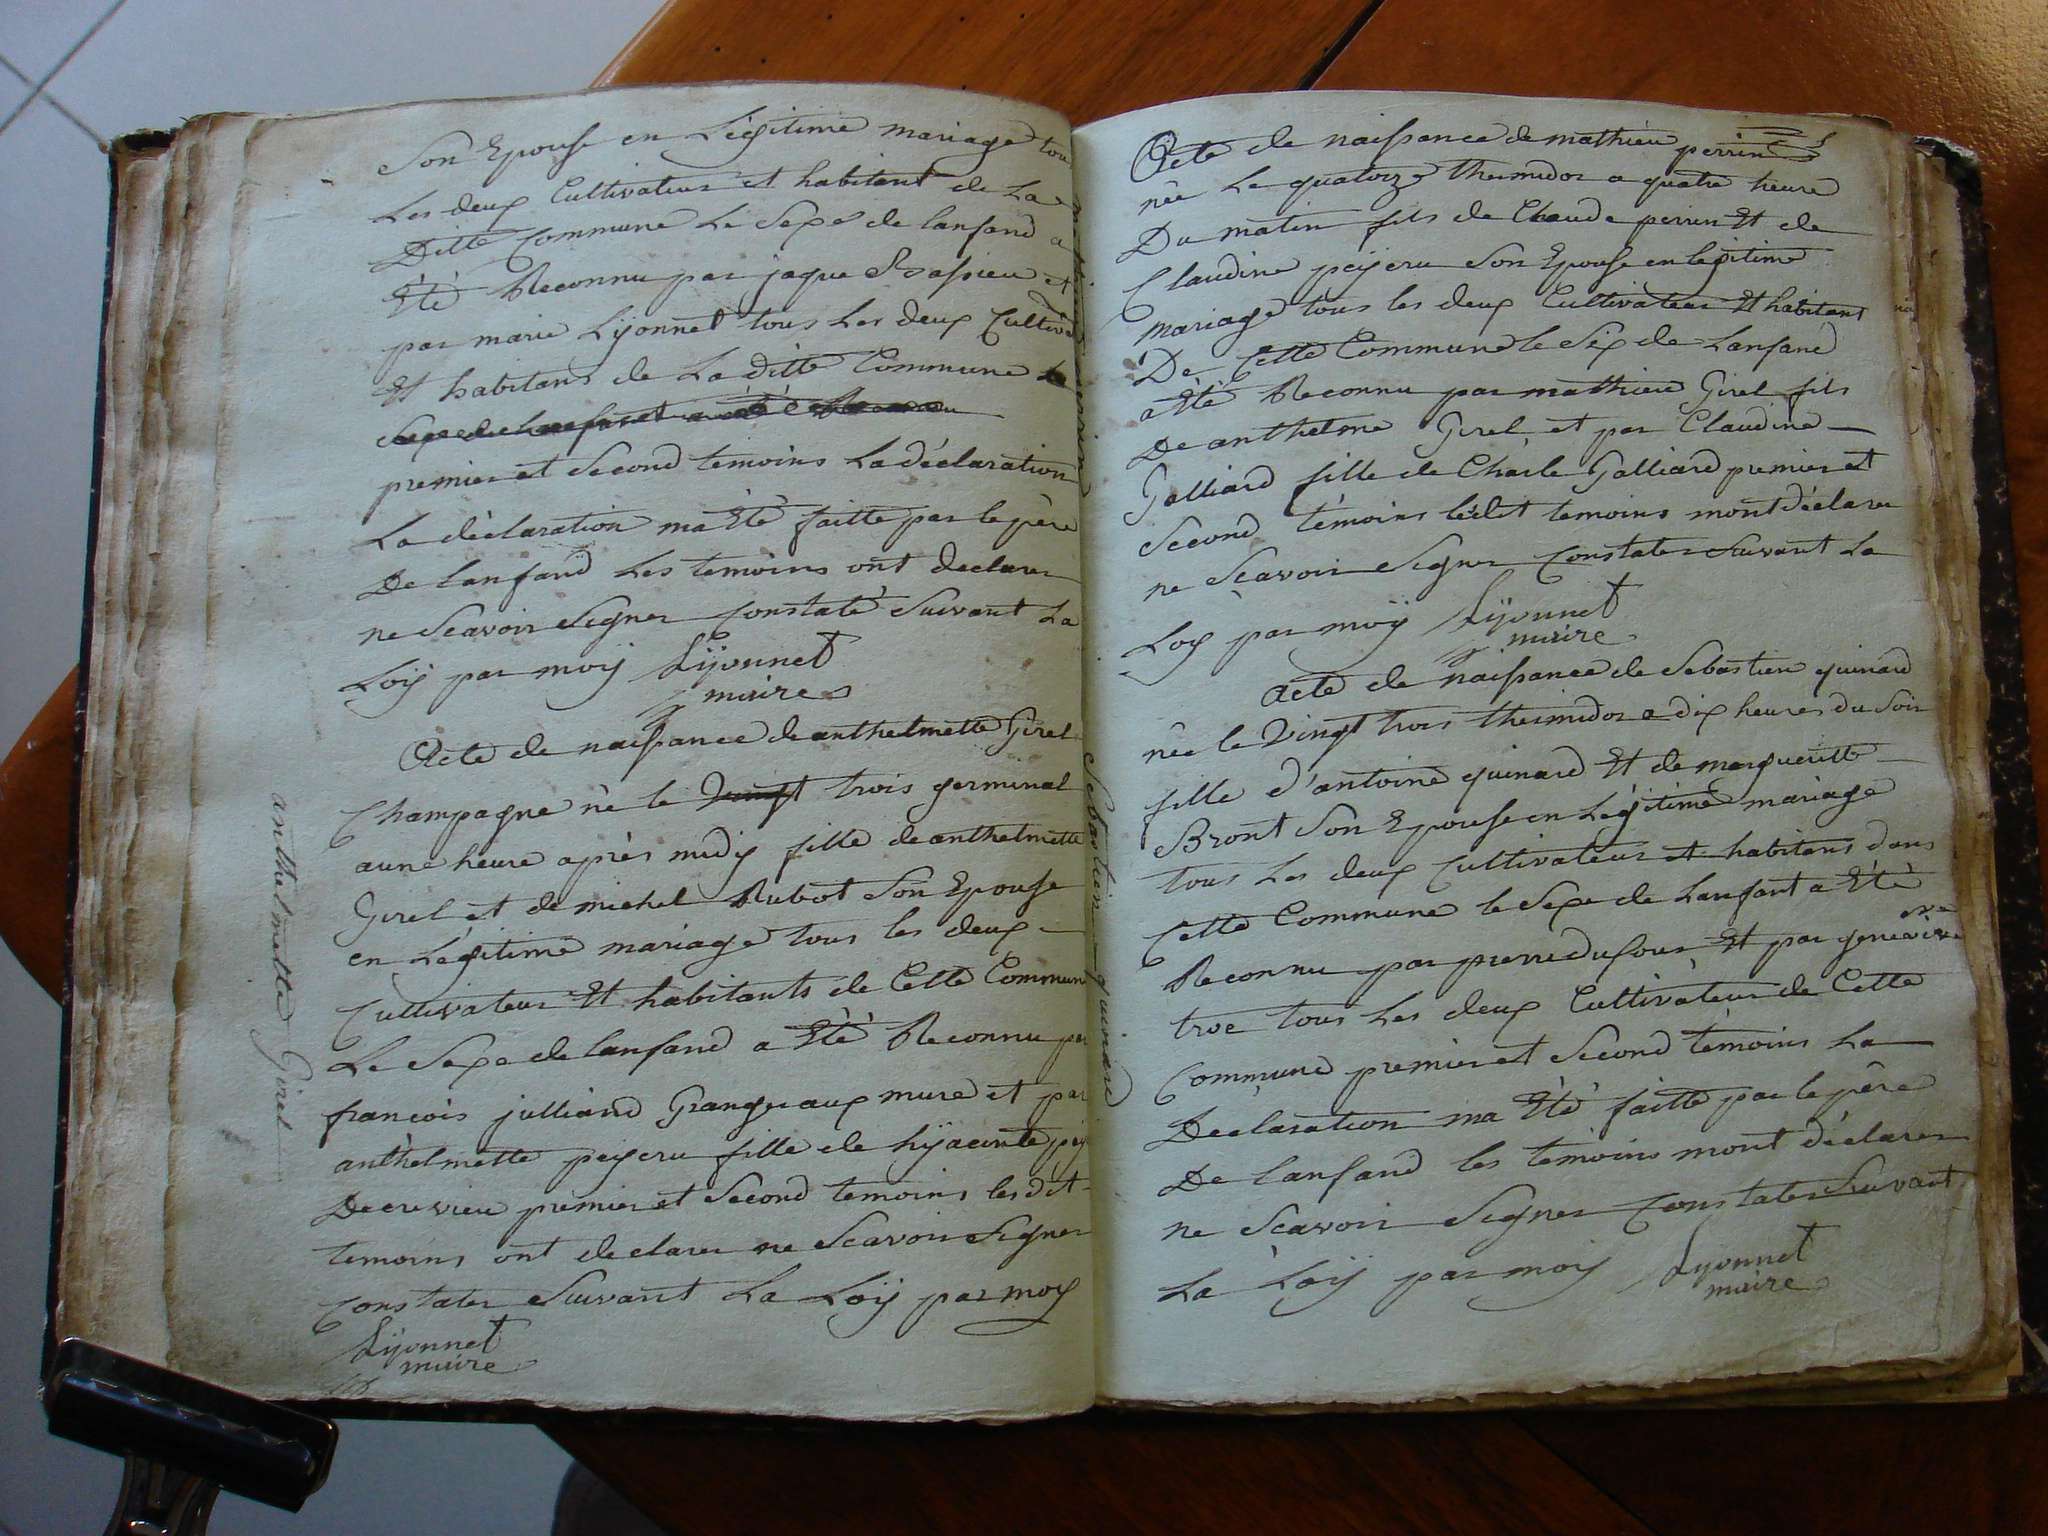 Son Epouse en Légitime mariage tou
Les deux Cultivateur et habitant de La
Ditte Commune Le Sexe de lanfand a
Eté Reconnu par jaque et
par marie Lÿonnet tous Les deux Cultiva
Et habitans de La ditte Commune
premier et Second temoins La déclaration
La déclaration ma Eté faitte par le père
De lanfand Les temoins ont declarer
ne Scavoir Signer Constaté Suivant La
Loÿ par moÿ Lÿonnet
maire
Acte de naissance de anthelmette Girel
Champagne né le vingt trois germinal
a une heure après midÿ fille de anthelmette
Girel et de michel Rubot Son Epouse
en Légitime mariage tous les deux
Cultivateur Et habitants de Cette Commune
Le Sexe de lanfand a Eté Reconnu par
francois julliand Granger aux mure et par
anthelmette peÿcru fille de hÿacinte peÿ
Decruvieu premier et Second temoins lesdit
temoins ont declarer ne Scavoir Signer
Constater Suivant La Loÿ par moy
Lÿonnet
maire
anthelmette Girel
mathieu perrin
Sebastien quinard
Acte de naissance de mathieu perrin
née Le quatorze thermidor a quatre heure
Du matin fils de Claude perrin Et de
Claudine peÿcru Son Epouse en legitime
mariage tous les deux Cultivateur Et habitant
De Cette Commune le Sex de Lanfand
a Eté Reconnu par mathieu Girel fils
De anthelme Girel et par Claudine
Galliard fille de Charle Galliard premier et
Second témoins lesdit temoins mont déclarer
ne Scavoir Signer Constater Suivant La
Loy par moÿ Lÿonnet
maire
Acte de naissance de Sebastien quinard
née le Vingt trois thermidor a dix heures du Soir
fille d'antoine quinard Et de margueritte
Bront Son Epouse en Légitime mariage
tous Les deux Cultivateur et habitans dans
Cette Commune le Sexe de Lanfant a Eté
Reconnu par pierre dufour Et par genevieve
troc tous Les deux Cultivateur de Cette
Commune premier et Second temoins La
Declaration ma Eté faitte par le père
De lanfand les temoins mont déclarer
ne Scavoir Signer Constater Suivant
La Loÿ par moÿ Lyonnet
maire